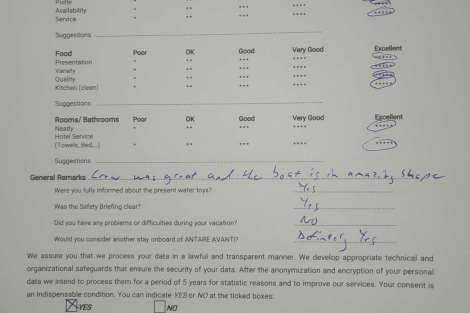 Polite * ** *** **** *****
Availability * ** *** **** *****
Service * ** *** **** *****
Suggestions
Food Poor OK Good Very Good Excellent
Presentation * ** *** **** *****
Variety * ** *** **** *****
Quality * ** *** **** *****
Kitchen (clean) * ** *** **** *****
Suggestions
Rooms/ Bathrooms Poor OK Good Very Good Excellent
Neatly * ** *** **** *****
Hotel Service
(Towels, Bed,..) * ** *** **** *****
Suggestions
General Remarks Crew was great and the boat is in amazing shape
Were you fully informed about the present water toys? Yes
Was the Safety Briefing clear? Yes
Did you have any problems or difficulties during your vacation? NO
Would you consider another stay onboard of ANTARE AVANTI? Definitely Yes
We assure you that we process your data in a lawful and transparent manner. We develop appropriate technical and
organizational safeguards that ensure the security of your data. After the anonymization and encryption of your personal
data we intend to process them for a period of 5 years for statistic reasons and to improve our services. Your consent is
an indispensable condition. You can indicate YES or NO at the ticked boxes:
YES NO